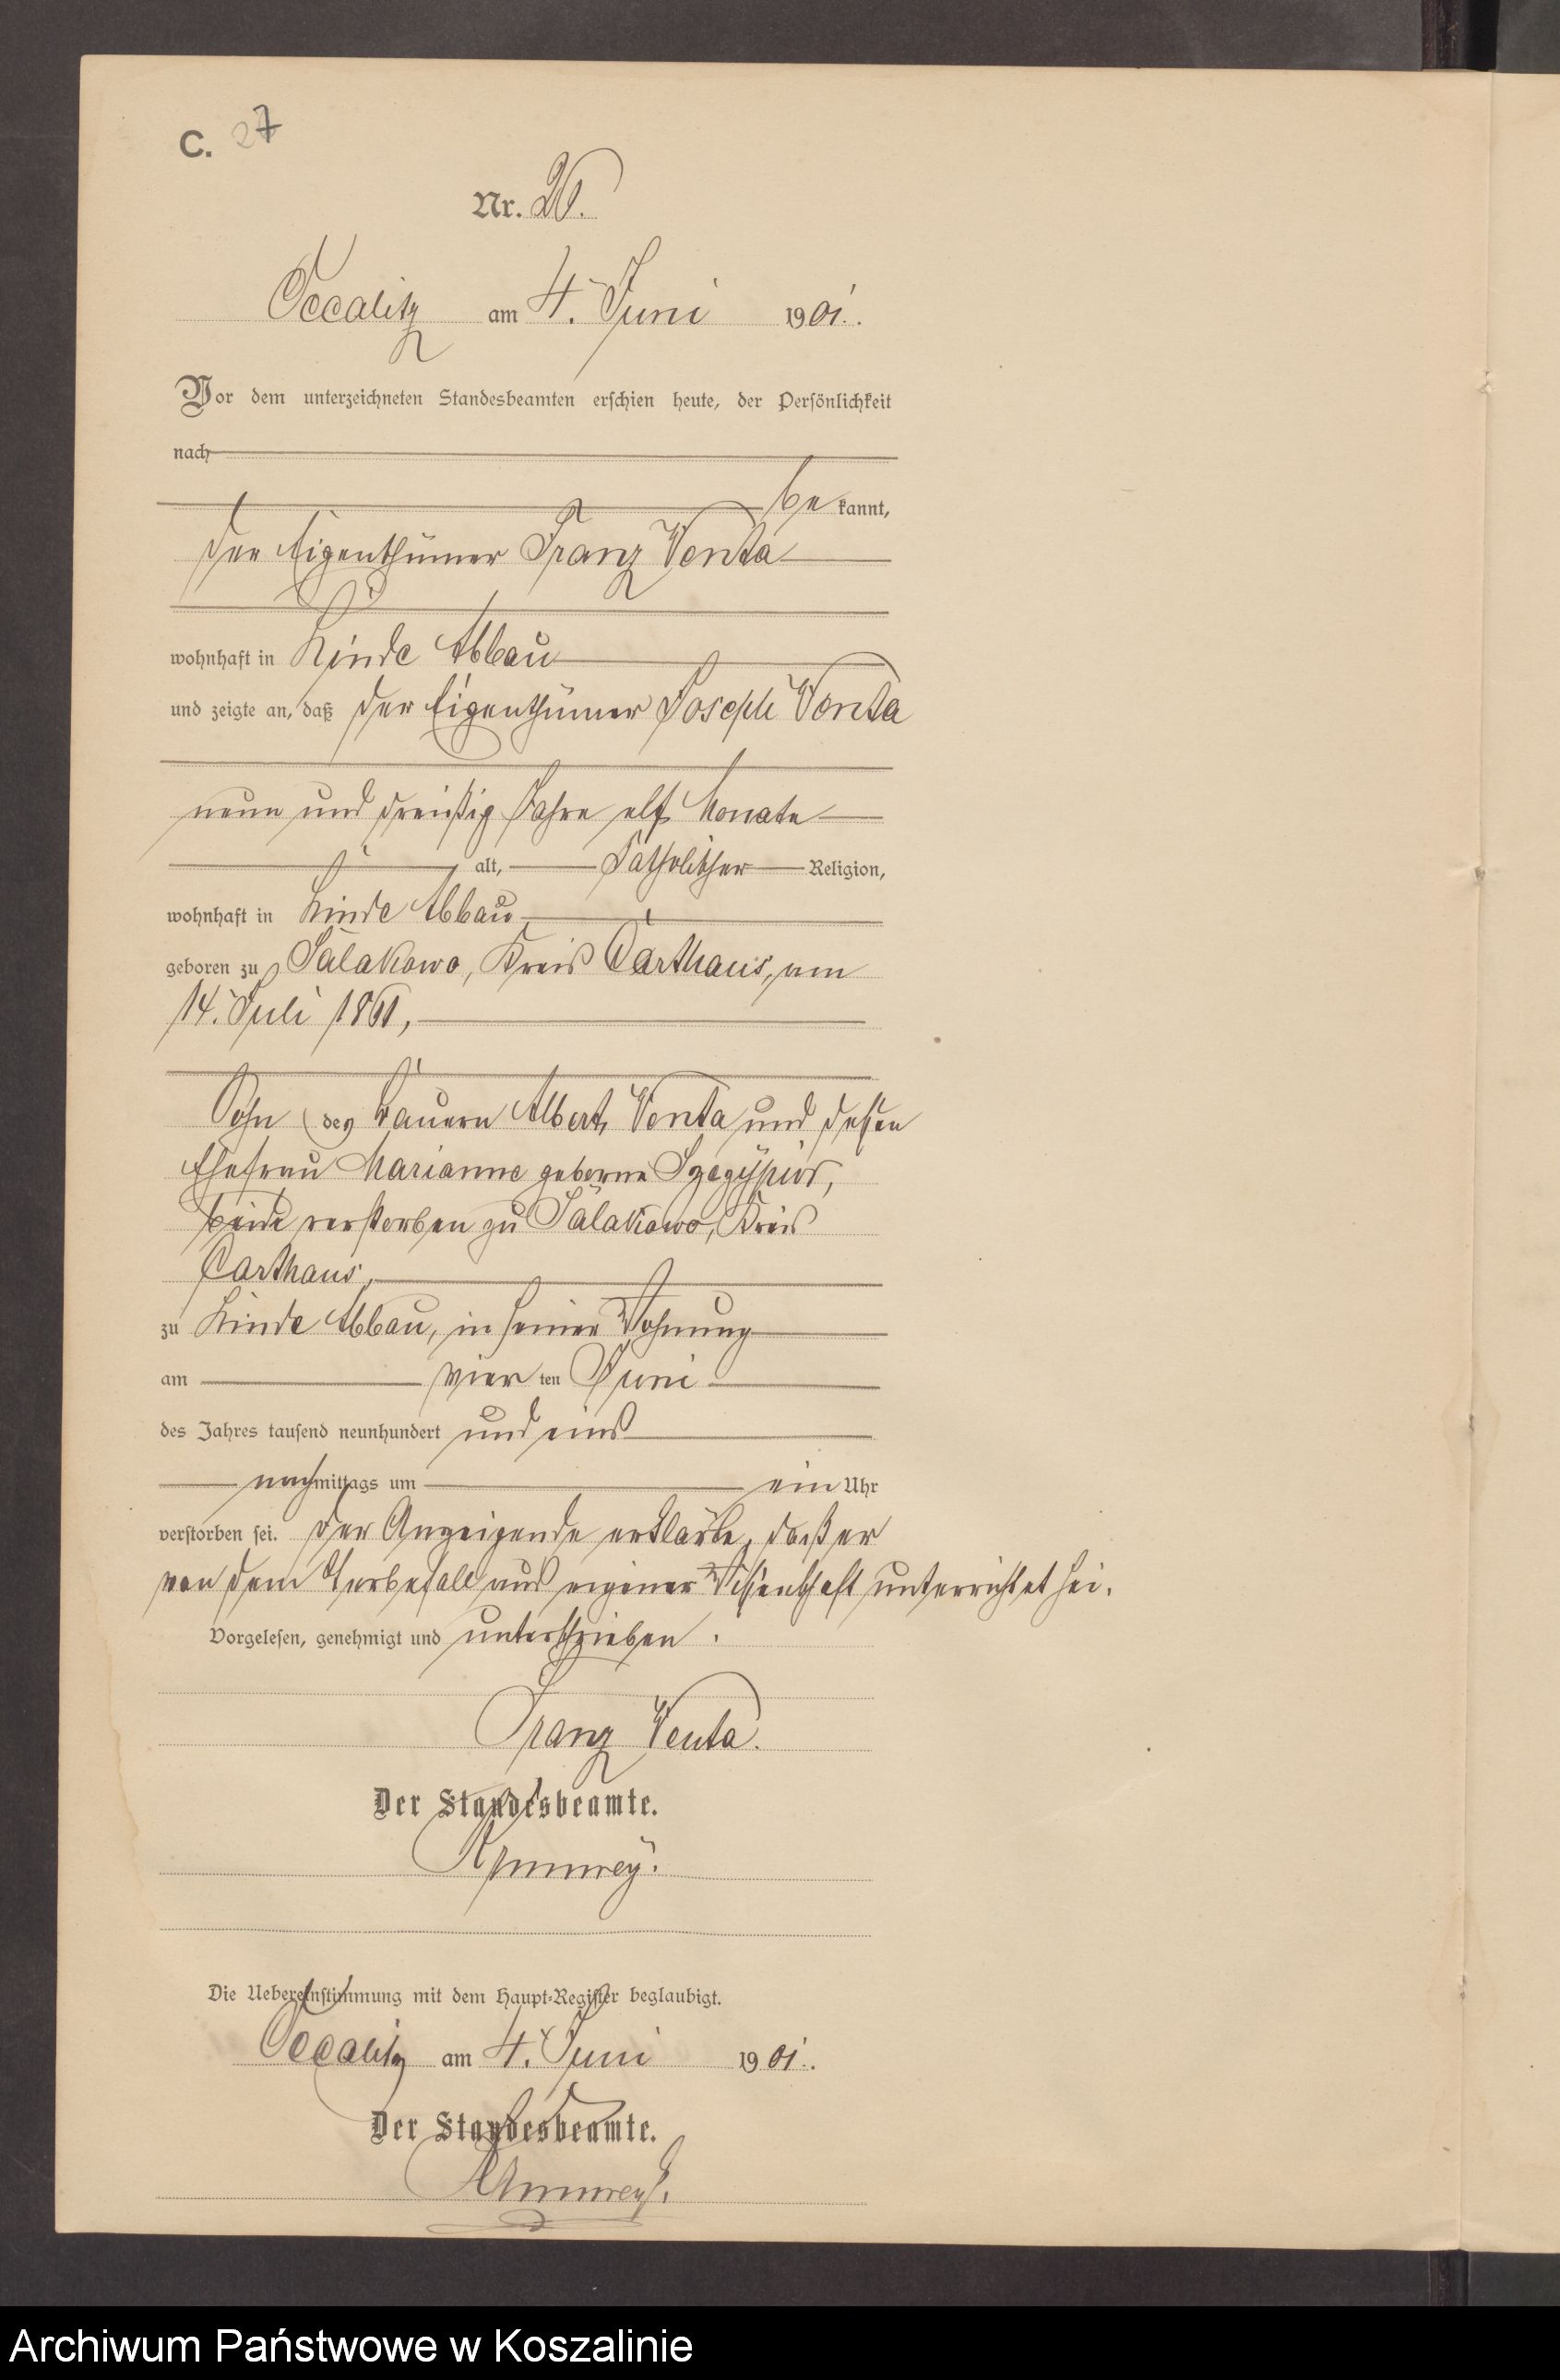 C. 27
Nr. 26.
Occalitz am 4. Juni 1901.
Vor dem unterzeichneten Standesbeamten erschien heute, der Persönlichkeit
nach
be kannt,
der Eigenthümer Franz Wenta
wohnhaft in Linde Abbau
und zeigte an, daß der Eigenthümer Joseph Wenta
neun und dreißig Jahre elf Monate
alt, katholischer Religion,
wohnhaft in Linde Abbau
geboren zu Salakowo, Kreis Carthaus, am
14. Juli 1861,
Sohn des Bauern Albert Wenta und dessen
Ehefrau Marianne geborne
beide verstorben zu Salakowo, Kreis
Carthaus,
zu Linde Abbau, in seiner Wohnung
am vier ten Juni
des Jahres tausend neunhundert und eins
nachmittags um ein Uhr
verstorben sei. Der Anzeigende erklärte, daß er
von dem Sterbefall aus eigener Wissenschaft unterrichtet sei.
Vorgelesen, genehmigt und unterschrieben.
Franz Wenta.
Der Standesbeamte.
Die Uebereinstimmung mit dem Haupt-Register beglaubigt.
Occalitz am 4. Juni 1901.
Der Standesbeamte.
Archiwum Państwowe w Koszalinie